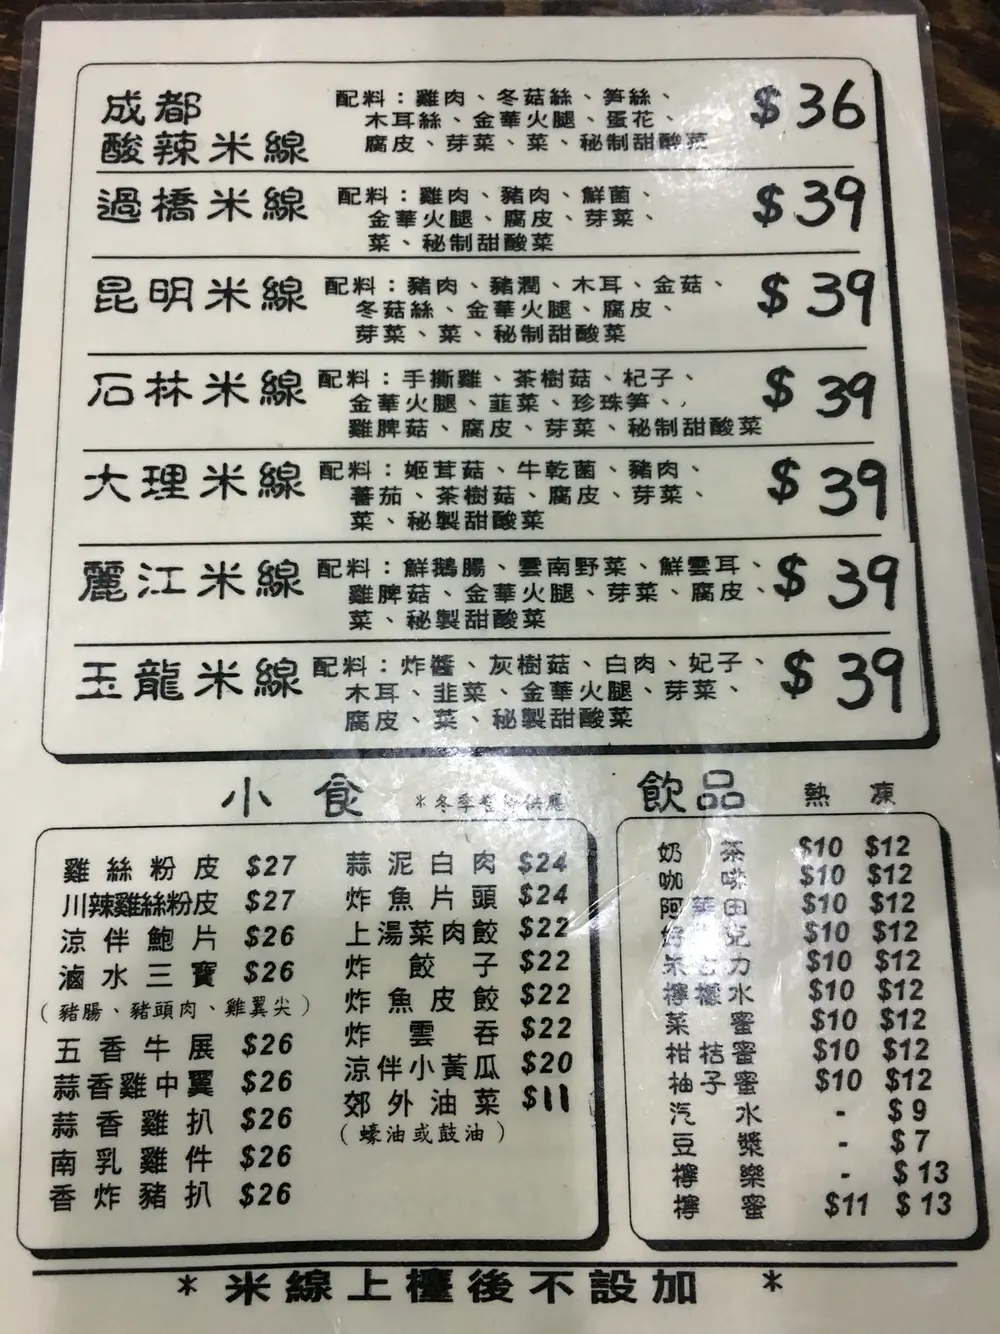 成都
酸辣米線
配料：雞肉、冬菇絲、笋絲、
木耳絲、金華火腿、蛋花、
腐皮、芽菜、菜、秘制甜酸菜
$36
過橋米線
配料：雞肉、豬肉、鮮菌、
金華火腿、腐皮、芽菜、
菜、秘制甜酸菜
$39
昆明米線
配料：豬肉、豬潤、木耳、金菇、
冬菇絲、金華火腿、腐皮、
芽菜、菜、秘制甜酸菜
$39
石林米線
配料：手撕雞、茶樹菇、杞子、
金華火腿、韮菜、珍珠笋、
雞脾菇、腐皮、芽菜、秘制甜酸菜
$39
大理米線
配料：姬茸菇、牛乾菌、豬肉、
蕃茄、茶樹菇、腐皮、芽菜、
菜、秘製甜酸菜
$39
麗江米線
配料：鮮鵝腸、雲南野菜、鮮雲耳、
雞脾菇、金華火腿、芽菜、腐皮、
菜、秘製甜酸菜
$39
玉龍米線
配料：炸醬、灰樹菇、白肉、妃子、
木耳、韭菜、金華火腿、芽菜、
腐皮、菜、秘製甜酸菜
$39
小食 *冬季暫停供應
雞絲粉皮 $27
川辣雞絲粉皮 $27
涼伴鮑片 $26
滷水三寶 $26
（豬腸、豬頭肉、雞翼尖）
五香牛展 $26
蒜香雞中翼 $26
蒜香雞扒 $26
南乳雞件 $26
香炸豬扒 $26
蒜泥白肉 $24
炸魚片頭 $24
上湯菜肉餃 $22
炸餃子 $22
炸魚皮餃 $22
炸雲吞 $22
涼伴小黃瓜 $20
郊外油菜 $11
（蠔油或鼓油）
飲品 熱 凍
奶茶 $10 $12
咖啡 $10 $12
阿華田 $10 $12
好立克 $10 $12
朱古力 $10 $12
檸檬水 $10 $12
菜蜜 $10 $12
柑桔蜜 $10 $12
柚子蜜 $10 $12
汽水 - $9
豆漿 - $7
檸樂 - $13
檸蜜 $11 $13
* 米線上檯後不設加 *